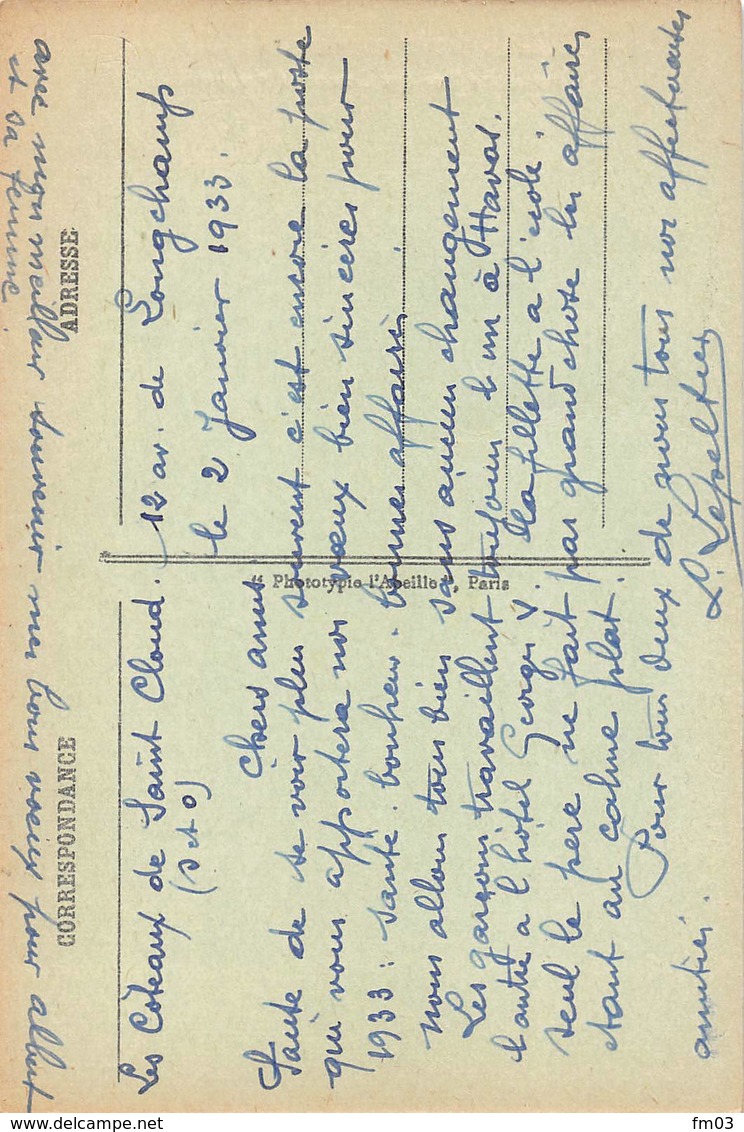 avec mon meilleur souvenir mes bons voeux pour albert
et sa femme
CORRESPONDANCE
ADRESSE
Les Côteaux de Saint Cloud. 12 av. de Longchamp
(S et O)
le 2 Janvier 1933.
Chers amis
Faute de se voir plus souvent c'est encore la poste
qui vous apportera nos vœux bien sincères pour
1933 : santé. bonheur. bonnes affaires
nous allons tous bien sans aucun changement
Les garçons travaillent toujours l'un à Havas.
l'autre a l'hôtel Georges V. la fillette a l'école.
seul le père ne fait pas grand chose les affaires
étant au calme plat.
Pour tous deux de nous tous nos affectueuses
amitiés.
L. Lepeltier
“ Phototypie l'Abeille ”, Paris
delcampe.net
fm03